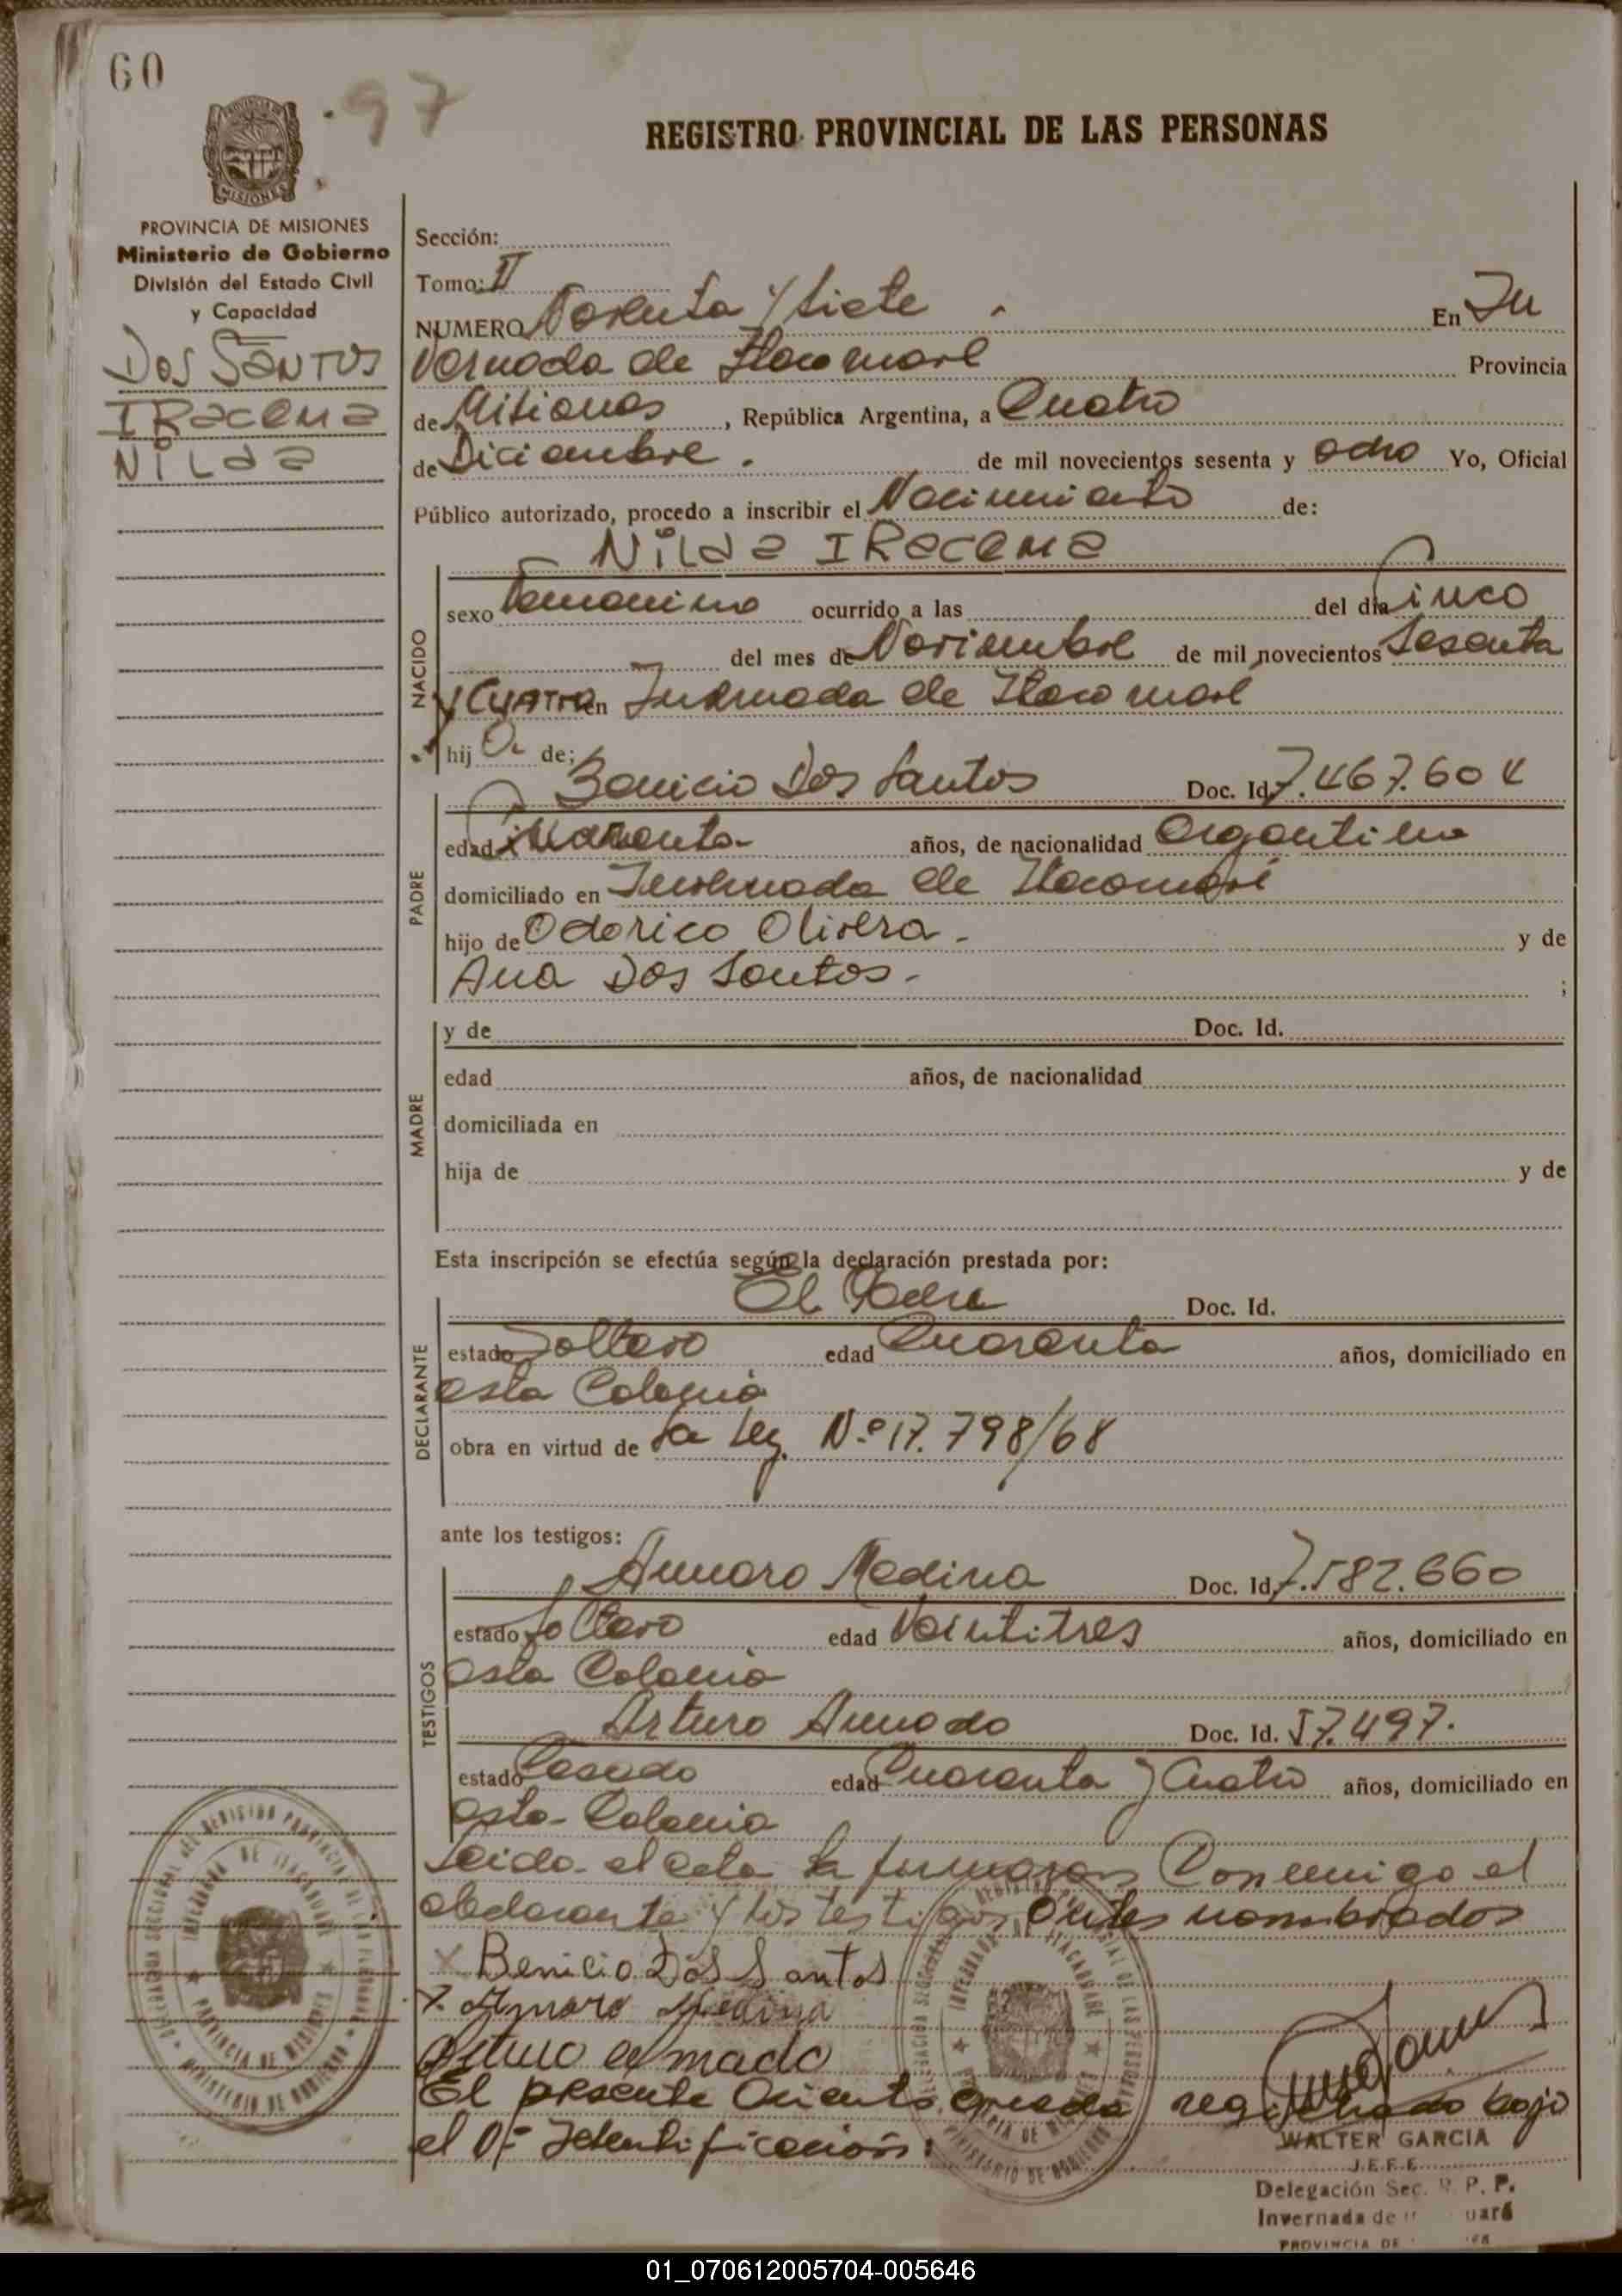 60
97
REGISTRO PROVINCIAL DE LAS PERSONAS
MISIONES
PROVINCIA DE MISIONES
Ministerio de Gobierno
División del Estado Civil
y Capacidad
Dos Santos
IRacema
Nilda
Sección:
Tomo: II
NUMERO Noventa y siete . En In
vernada de Itacuaré Provincia
de Misiones, República Argentina, a Cuatro
de Diciembre . de mil novecientos sesenta y ocho Yo, Oficial
Público autorizado, procedo a inscribir el Nacimiento de:
Nilda IRacema
NACIDO
sexo Femenino ocurrido a las del día Cinco
del mes de Noviembre de mil novecientos Sesenta
y Cuatro en Invernada de Itacuaré
hija de;
PADRE
Benicio Dos Santos Doc. Id. 7.467.604
edad Cuarenta años, de nacionalidad Argentina
domiciliado en Invernada de Itacuaré
hijo de Odorico Olivera - y de
Ana Dos Santos - ;
MADRE
y de Doc. Id.
edad años, de nacionalidad
domiciliada en
hija de y de
Esta inscripción se efectúa según la declaración prestada por:
DECLARANTE
El Padre Doc. Id.
estado Soltero edad Cuarenta años, domiciliado en
esta Colonia
obra en virtud de La Ley Nº 17.798/68
ante los testigos:
TESTIGOS
Amaro Medina Doc. Id. 7.582.660
estado Soltero edad Veintitres años, domiciliado en
esta Colonia
Arturo Amado Doc. Id. 57.497.
estado Casado edad Cuarenta y Cuatro años, domiciliado en
esta Colonia
Leida el acta la firmaron Conmigo el
declarante y los testigos Antes nombrados
x Benicio Dos Santos
x Amaro Medina
Arturo Amado
El presente Asiento queda registrado bajo
el Nº Identificación:
WALTER GARCIA
JEFE
Delegación Sec. R. P. P.
Invernada de
PROVINCIA DE
01_070612005704-005646